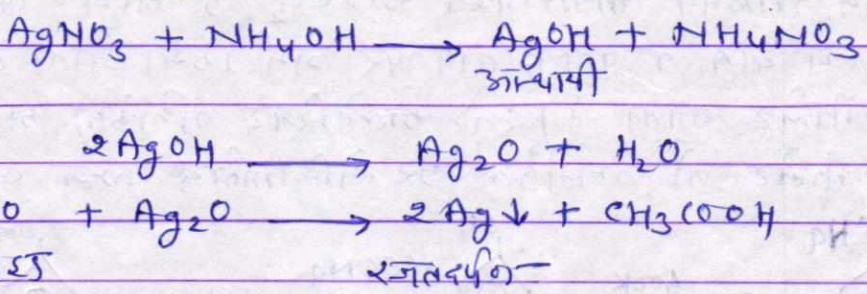 AgNO₃ + NH₄OH ⟶ AgOH + NH₄NO₃
अस्थायी
2AgOH ⟶ Ag₂O + H₂O
O + Ag₂O ⟶ 2Ag↓ + CH₃COOH
रजतदर्पण